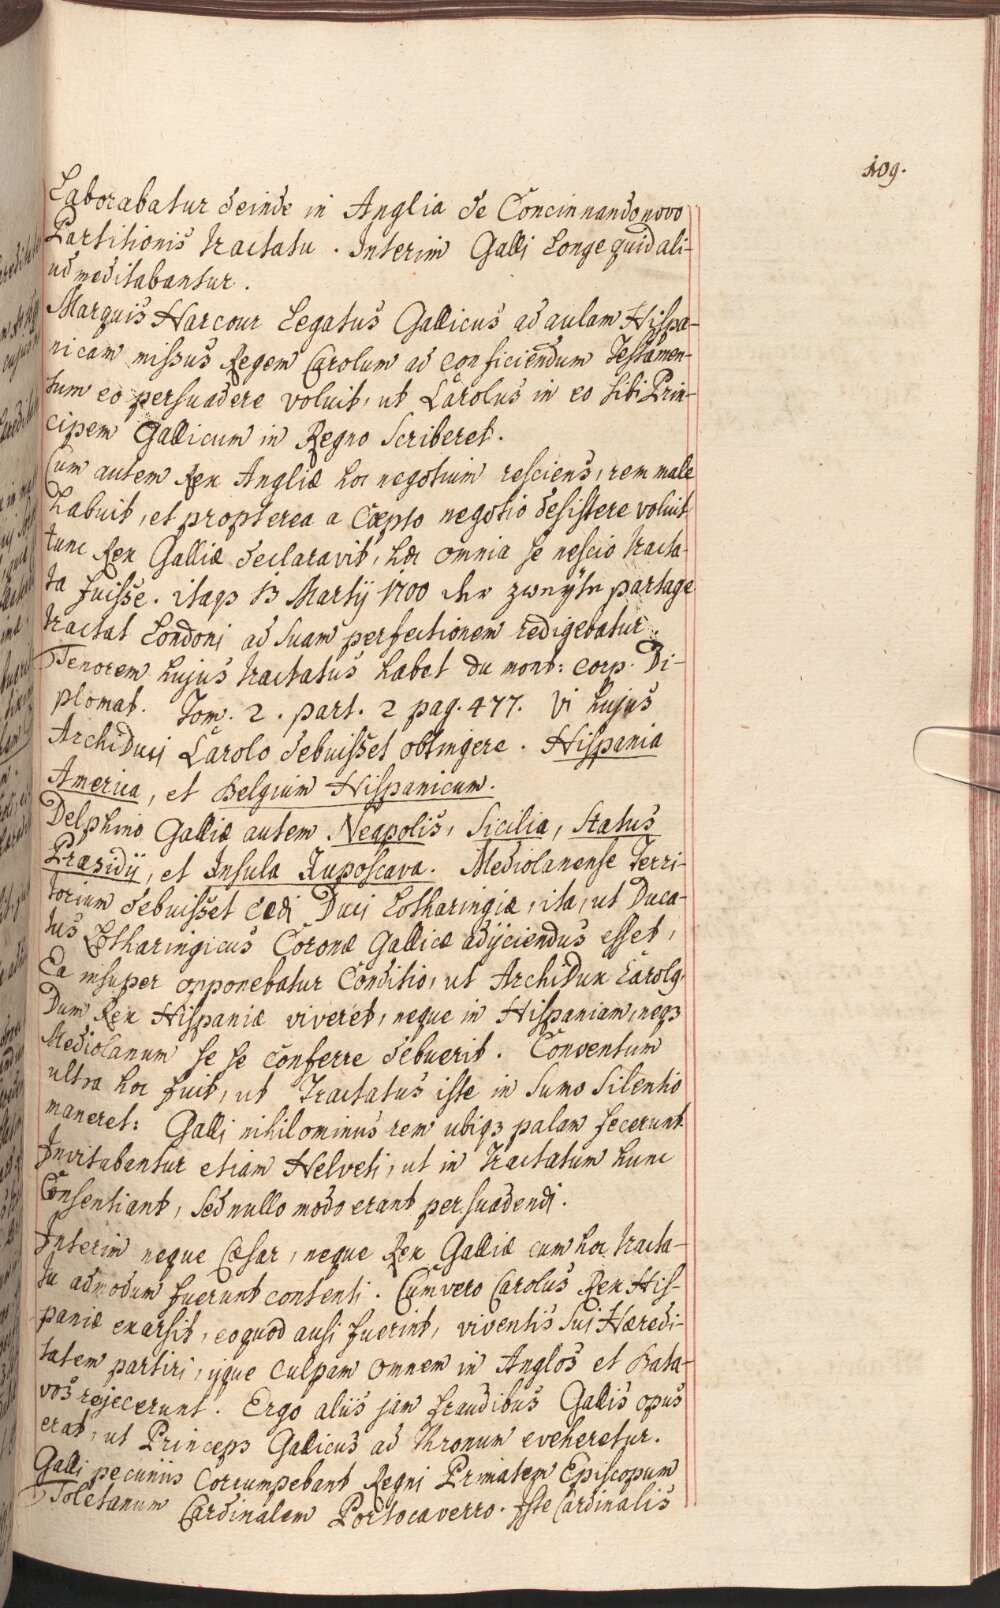 109.
Laborabatur deinde in Anglia de Concinnando novo
Partitionis tractatu. Interim Galli Longe quid ali-
ud meditabantur.
Marquis Harcour Legatus Gallicus ad aulam Hispa-
nicam missus Regem Carolum ad conficiendum Testamen-
tum eo persuadere voluit, ut Carolus in eo sibi Prin-
cipem Gallicum in Regno Scriberet.
Cum autem Rex Angliæ hoc negotium resciens, rem male
habuit, et propterea a Cæpto negotio desistere voluit
tunc Rex Galliæ declaravit, hæc omnia se nescio tracta-
ta fuisse. itaqs 13 Martij 1700 der zweÿte partage
tractat Londonj ad Suam perfectionem redigebatur.
Tenorem hujus tractatus habet du mont: corp. Di-
plomat. Tom. 2. part. 2 pag. 477. Vi hujus
ArchiDuci Carolo debuisset obtingere. Hispania
America, et Belgium Hispanicum.
Delphino Galliæ autem Neapolis, Sicilia, Status
Præsidij, et Insula Zuposcava. Mediolanense Terri-
torium debuisset cedi Duci Lotharingiæ, ita, ut Duca-
tus Lotharingicus Coronæ Gallicæ adijciendus esset,
Ea insuper opponebatur Conditio, ut ArchiDux Carolg
Dum Rex Hispaniæ viveret, neque in Hispaniam, neqz
Mediolanum se se conferre debuerit. Conventum
ultra hoc fuit, ut Tractatus iste in Sumo Silentio
maneret: Galli nihilominus rem ubiqz palam fecerunt
Invitabantur etiam Helveti, ut in Tractatum hunc
Consentiant, Sed nullo modo erant persuadendi.
Interim neque Cæsar, neque Rex Galliæ cum hoc tracta-
tu admodum fuerunt contenti. Cum vero Carolus Rex His-
paniæ exarsit, eo quod ausi fuerint, viventis Sui Hæredi-
tatem partiri, ijque Culpam omnem in Anglos et Bata-
vos rejecerunt. Ergo aliis jam fraudibus Gallis opus
erat, ut Princeps Gallicus ad thronum eveheretur.
Galli pecuniis Corrumpebant Regni Primatem Episcopum
Toletanum Cardinalem Portocaverro. Iste Cardinalis